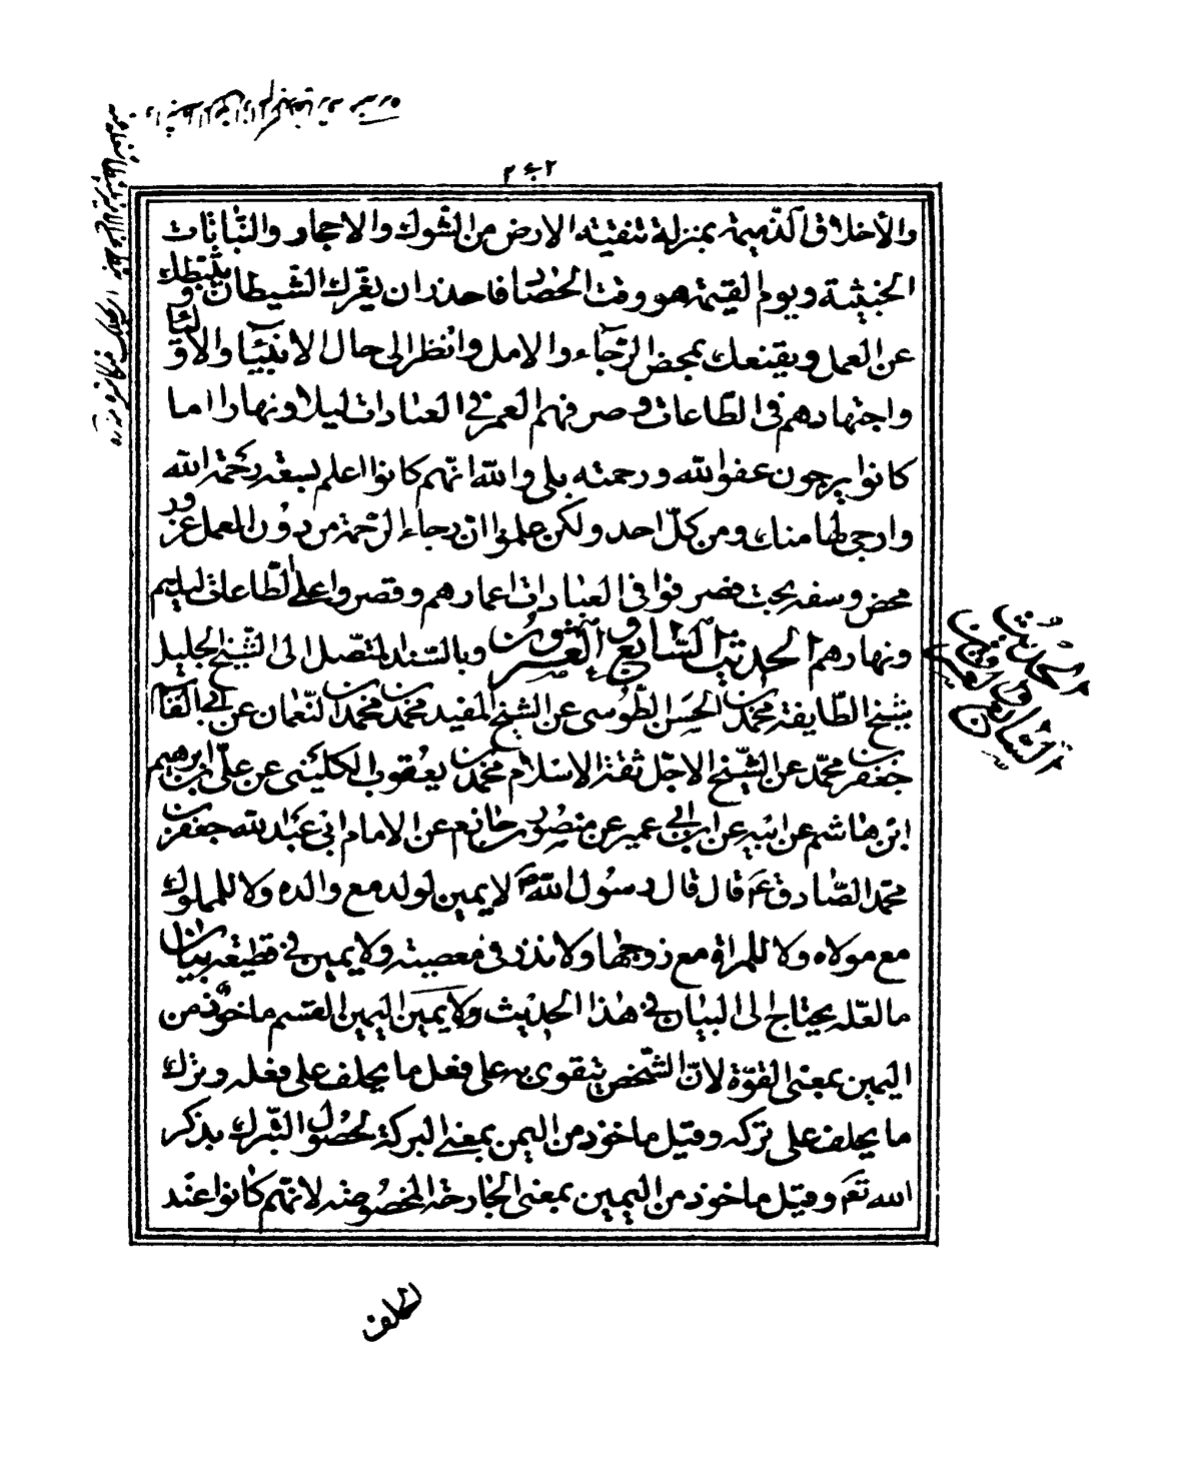 والأخلاق الذميمة بمنزلة تنقيته الارض من الشوك والاحجار والنباتات
الخبيثة ويوم القيمة هو وقت الحصاد فاحذر ان يغرك الشيطان ويثبطك
عن العمل ويقنعك بمحض الرجاء والامل وانظر الى حال الانبياء والاولياء
واجتهادهم فى الطاعات وصرفهم العمر فى العبادات ليلا ونهارا اما
كانوا يرجون عفو الله ورحمته بلى والله انهم كانوا اعلم بسعة رحمة الله
وارجى لها منك ومن كل احد ولكن علموا ان رجاء الرحمة من دون العمل غرور
محض وسفه بحت فصرفوا فى العبادات اعمارهم وقصروا على الطاعات ليلهم
ونهارهم الحديث السابع والعشرون وبالسند المتصل الى الشيخ الجليل
شيخ الطايفة محمد بن الحسن الطوسى عن الشيخ المفيد محمد بن محمد بن النعمان عن ابى القاسم
جعفر بن محمد عن الشيخ الاجل ثقة الاسلام محمد بن يعقوب الكلينى عن على بن ابرهيم
ابن هاشم عن ابيه عن ابن ابى عمير عن منصور بن حازم عن الامام ابى عبد الله جعفر بن
محمد الصادق ع قال قال رسول الله ص لا يمين لولد مع والده ولا للمملوك
مع مولاه ولا للمراة مع زوجها ولا نذر فى معصية ولا يمين فى قطيعة بيان
ما لعله يحتاج الى البيان فى هذا الحديث ولا يمين اليمين القسم ماخوذ من
اليمين بمعنى القوة لان الشخص يتقوى به على فعل ما يحلف على فعله وترك
ما يحلف على تركه وقيل ماخوذ من اليمن بمعنى البركة لحصول التبرك بذكر
الله تعم وقيل ماخوذ من اليمين بمعنى الجارحة المخصوصة لانهم كانوا عند
الحديث
السابع والعشرون
الحلف